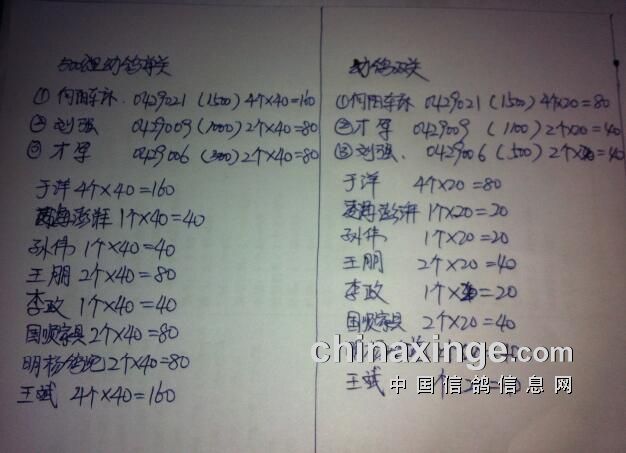 500公里幼鸽单关
① 何阳东林. 0429021 (1500) 4个×40=160
② 刘强 0429009 (1000) 2个×40=80
③ 才军 0429006 (500) 2个×40=80
于洋 4个×40=160
澎湃 1个×40=40
孙伟 1个×40=40
王朋 2个×40=80
李政 1个×40=40
国顺家具 2个×40=80
明杨鸽 2个×40=80
王斌 4个×40=160
幼鸽双关
① 何阳东林 0429021 (1500) 4个×20=80
② 才军 0429009 (1100) 2个×20=40
③ 刘强. 0429006 (500) 2个×20=40
于洋 4个×20=80
澎湃 1个×20=20
孙伟 1个×20=20
王朋 2个×20=40
李政 1个×20=20
国顺家具 2个×20=40
chinaxinge.com
中国信鸽信息网
王斌